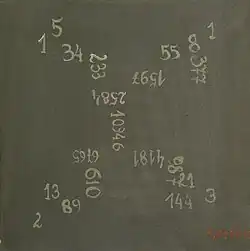 5
1
1
34
233
55
8
377
1597
2584
10946
6765
4181
610
987
21
13
89
144
3
2